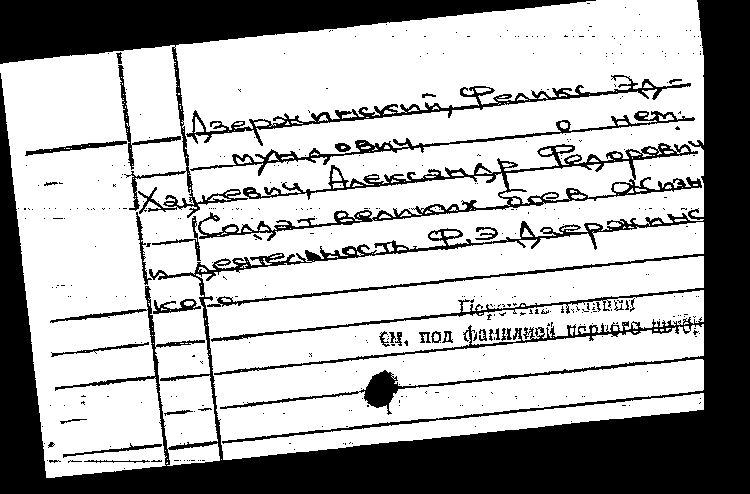 Дзержинский, Феликс Эд=
мундович, о нем.
Хацкевич, Александр Федорович
Солдат великих боев. Жизнь
и деятельность Ф.Э.Дзержинс
кого.
Перечень изданий
см. под фамилией первого автора